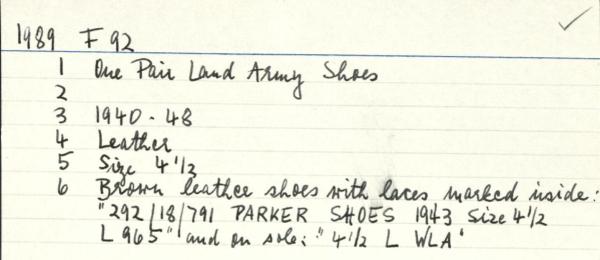 1989 F 92
1 One Pair Land Army Shoes
2
3 1940 - 48
4 Leather
5 Size 4 1/2
6 Brown leather shoes with laces marked inside:
"292/18/791 PARKER SHOES 1943 Size 4 1/2
L 965" and on sole: "4 1/2 L WLA"